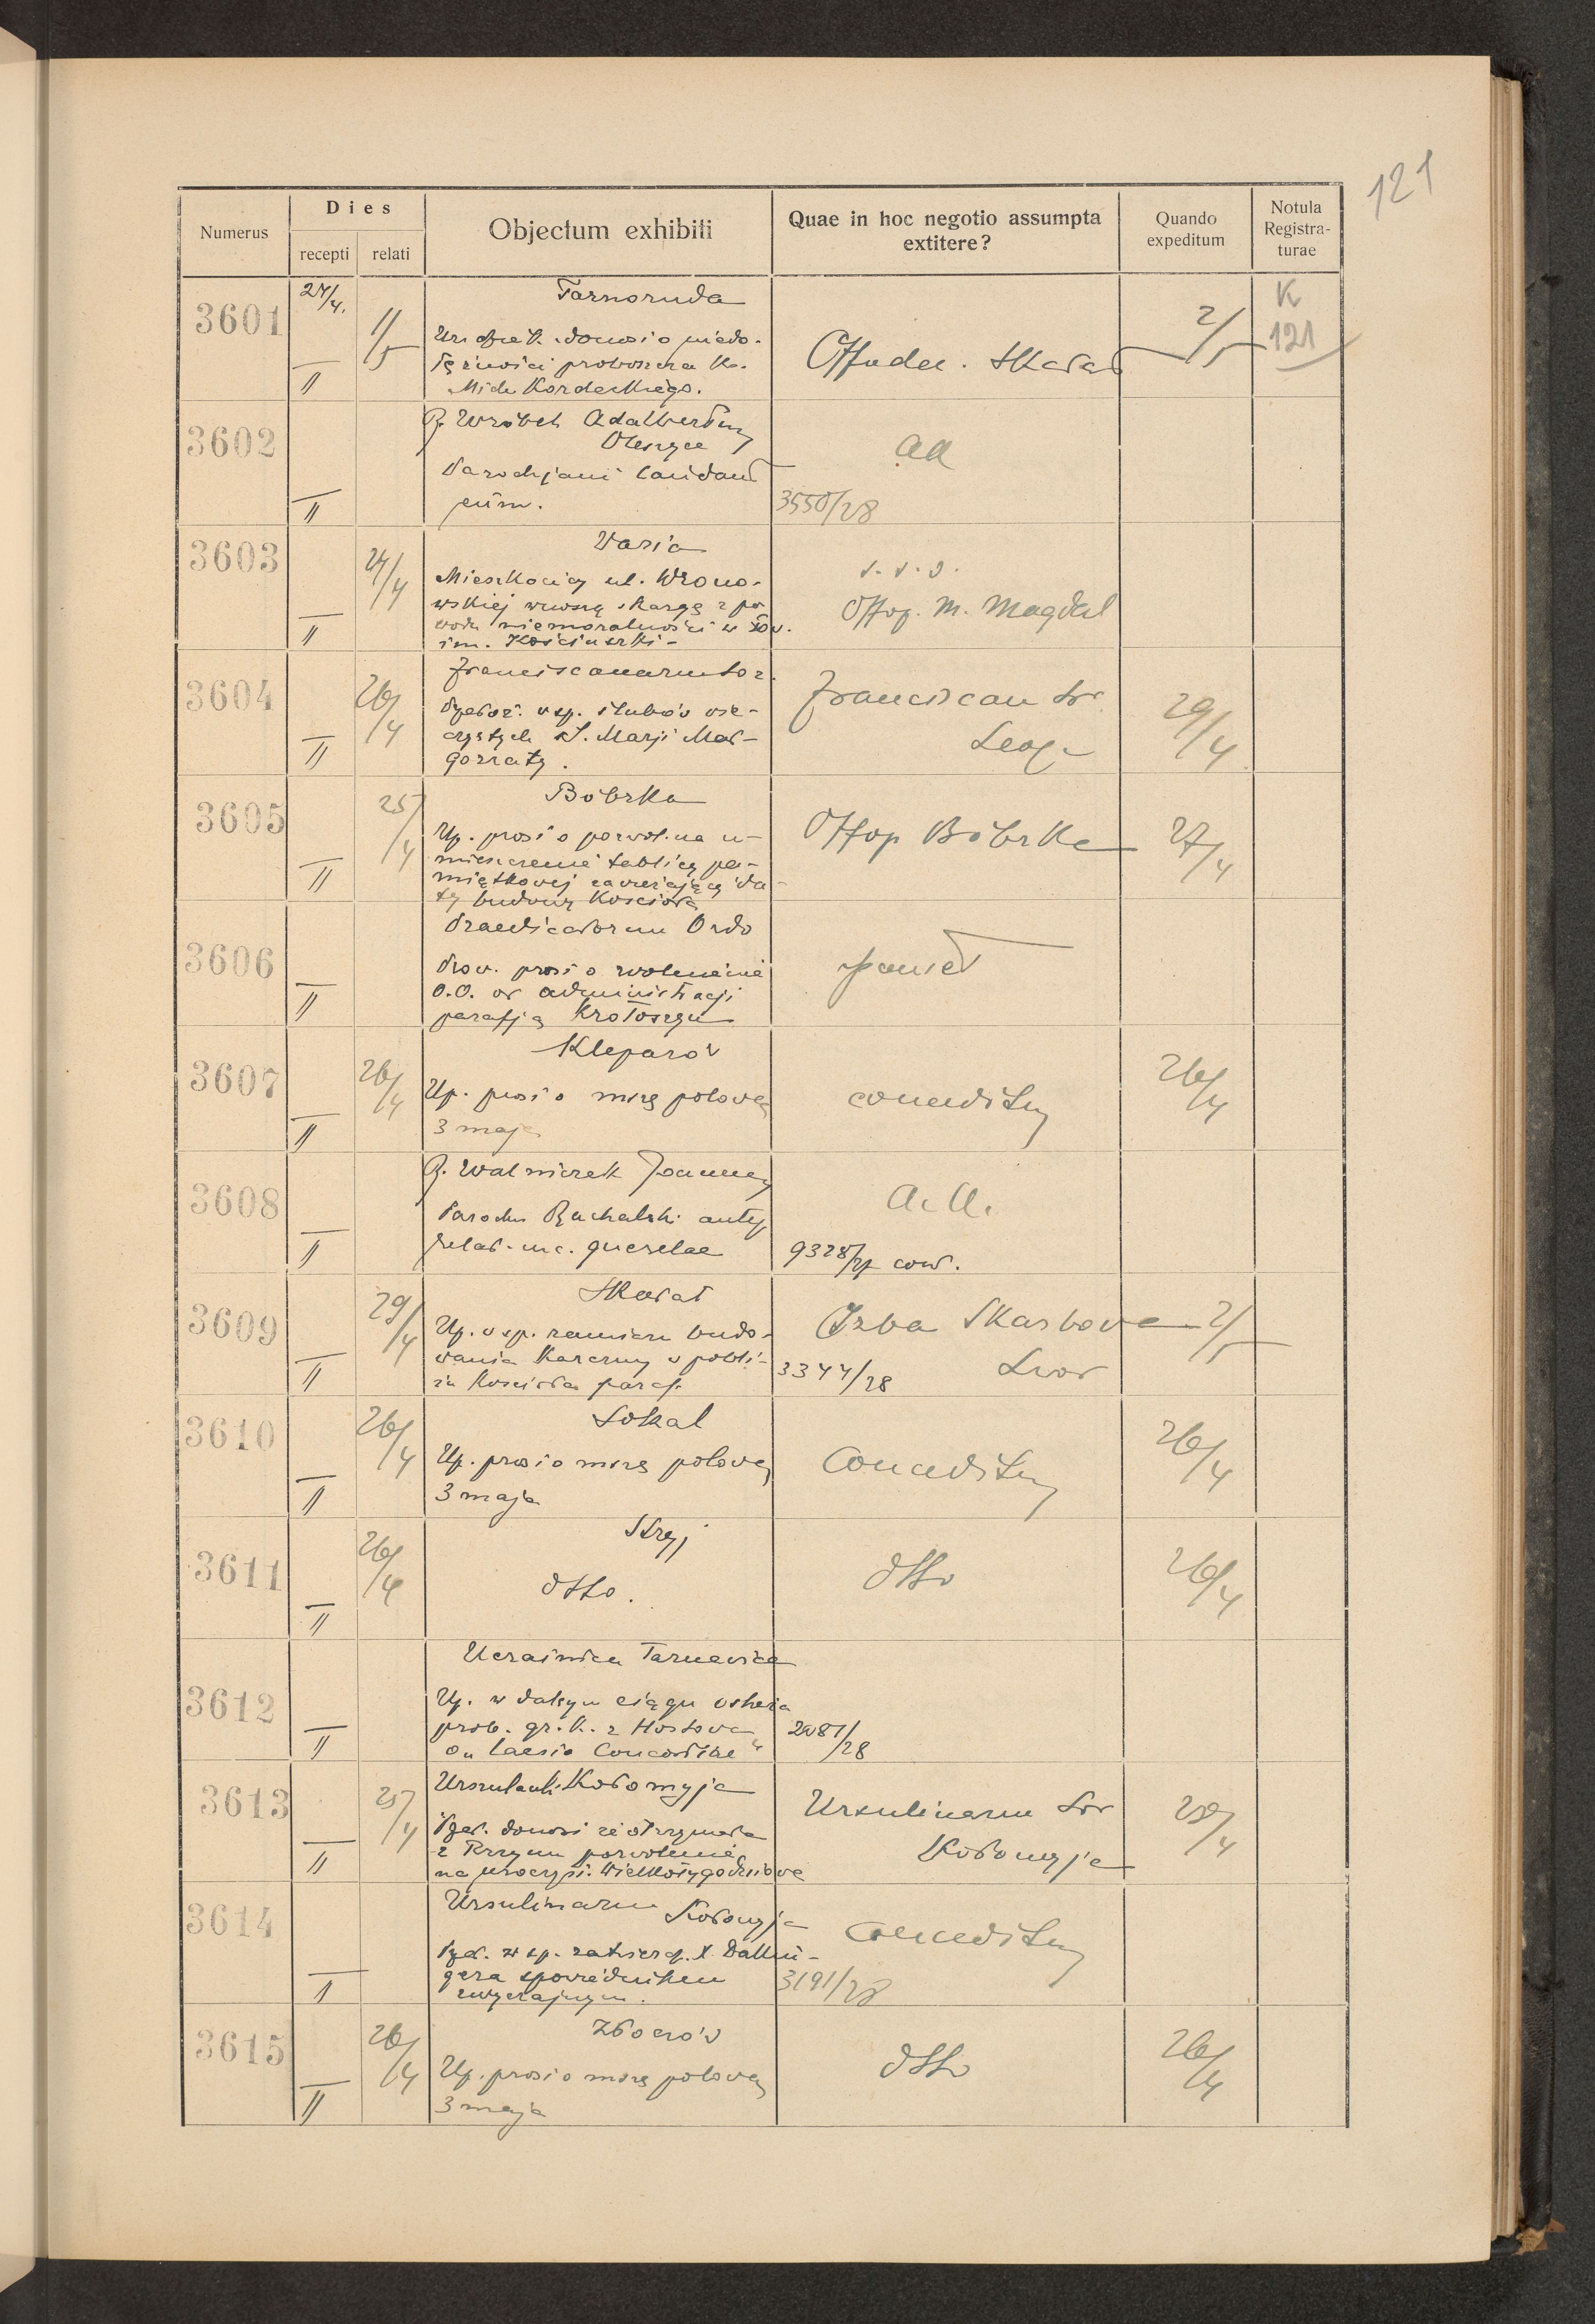 121
Numerus
Dies
recepti
relati
Objectum exhibiti
Quae in hoc negotio assumpta
extitere?
Quando
expeditum
Notula
Registra-
turae
3601
24/4.
1/5
II
Tarnoruda
donosi o niedo-
proboszcza ks.
Mich Kordeckiego.
Offudec. Skałat
2/5
K
121
3602
II
P. Wróbel Adalbertus
Oleszyce
Parochjani laudant
eum.
aa
3550/28
3603
24/4
II
Varia
Mieszkańcy ul. Wrono-
wskiej wnoszą skargę z po
wodu niemoralności w Tow.
im. Kościuszki -
Offop. M. Magdal
3604
26/4
II
Franciscanarum Sor.
Przełoż. w sp. ślubów wie-
czystych S. Marji Mał-
gorzaty.
Franciscan Sor
Leop.
29/4
3605
25/4
II
Bóbrka
Up. prosi o pozwol. na u-
mieszczenie tablicy pa-
miątkowej zawierającej da-
ty budowy Kościoła
Offop Bóbrka
27/4
3606
II
Praedicatorum Ordo
Prow. prosi o zwolnienie
O.O. od administracji
parafją Krotoszyn
3607
26/4
II
Kleparów
Up. prosi o mszę polową
3 maja
conceditur
26/4
3608
II
P. Walniczek Joannes
Parochus
relat. querelae
a.a.
9328/27
3609
29/4
II
Skałat
Up. w sp. zamiaru budo-
wania karczmy w pobli-
żu Kościoła paraf.
Izba Skarbowa
Lwów
3344/28
2/5
3610
26/4
II
Sokal
Up. prosi o mszę polową
3 maja
Conceditur
26/4
3611
26/4
II
Stryj
dtto.
dtto
26/4
3612
II
Ucrainica Tarnavica
Up. w dalszym ciągu oskarża
prob. gr. k. z Hostowa
o „laesio Concordiae"
2081/28
3613
25/4
II
Urszulanki Kołomyja
Przeł. donosi że otrzymała
z Rzymu pozwolenie
na uroczyst. Wielkotygodniowe
Ursulinarum Sor
Kołomyja
28/4
3614
II
Ursulinarum Kołomyja
Przeł. w sp. zatwierdz. X
gera spowiednikiem
zwyczajnym.
Conceditur
3191/28
3615
26/4
II
Zborów
Up. prosi o mszę polową
3 maja
dtto
26/4